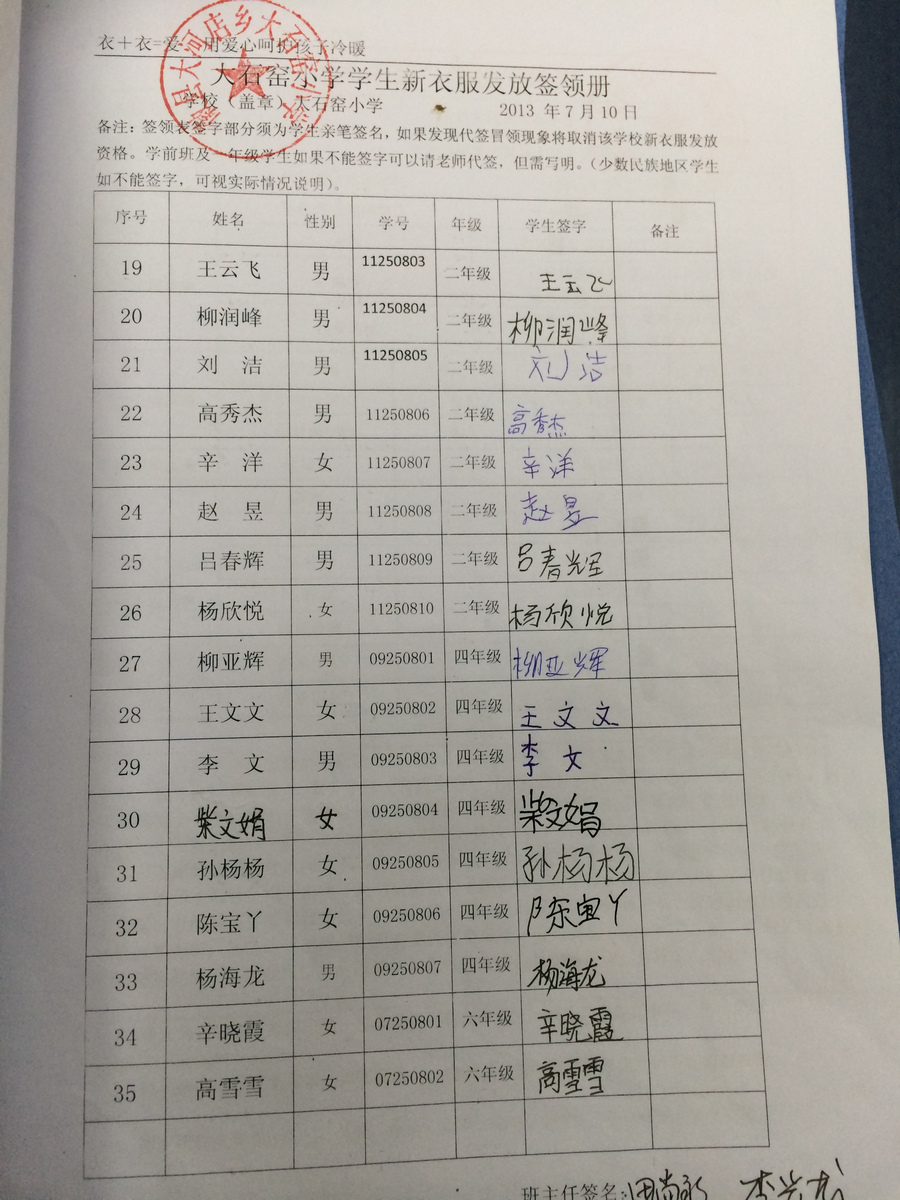 衣＋衣=爱 用爱心呵护孩子冷暖
大石窑小学学生新衣服发放签领册
学校（盖章）大石窑小学 2013 年 7 月 10 日
备注：签领表签字部分须为学生亲笔签名，如果发现代签冒领现象将取消该学校新衣服发放
资格。学前班及一年级学生如果不能签字可以请老师代签，但需写明。（少数民族地区学生
如不能签字，可视实际情况说明）。
序号 姓名 性别 学号 年级 学生签字 备注
19 王云飞 男 11250803 二年级 王云飞
20 柳润峰 男 11250804 二年级 柳润峰
21 刘 洁 男 11250805 二年级 刘洁
22 高秀杰 男 11250806 二年级 高秀杰
23 辛 洋 女 11250807 二年级 辛洋
24 赵 昱 男 11250808 二年级 赵昱
25 吕春辉 男 11250809 二年级 吕春辉
26 杨欣悦 女 11250810 二年级 杨欣悦
27 柳亚辉 男 09250801 四年级 柳亚辉
28 王文文 女 09250802 四年级 王文文
29 李 文 男 09250803 四年级 李文
30 柴文娟 女 09250804 四年级 柴文娟
31 孙杨杨 女 09250805 四年级 孙杨杨
32 陈宝丫 女 09250806 四年级 陈宝丫
33 杨海龙 男 09250807 四年级 杨海龙
34 辛晓霞 女 07250801 六年级 辛晓霞
35 高雪雪 女 07250802 六年级 高雪雪
班主任签名: